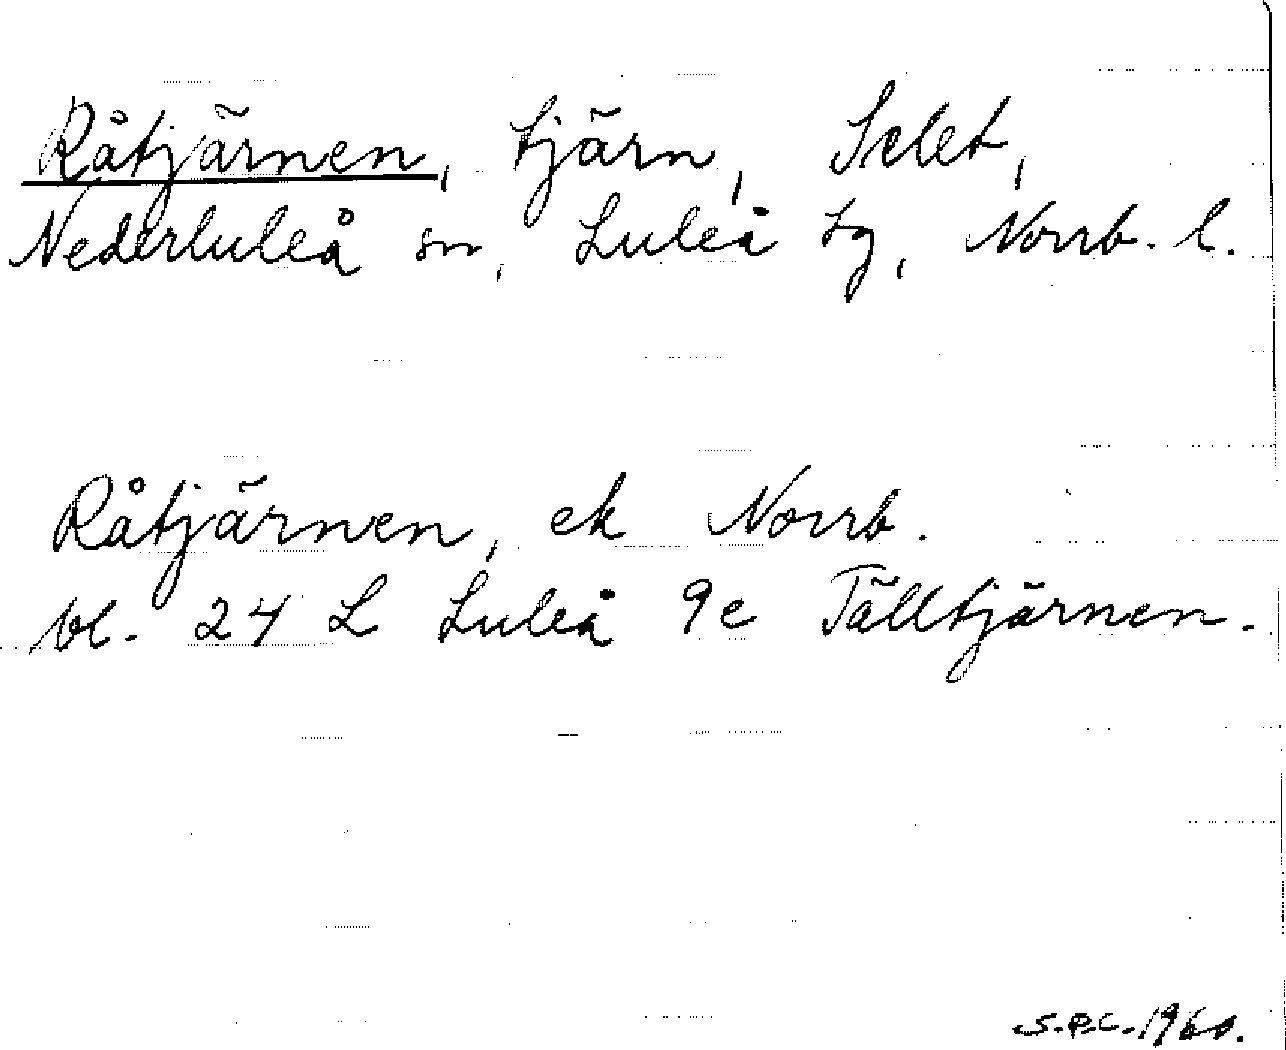 Råtjärnen, tjärn, Selet,
Nederluleå sn, Luleå tg, Norrb. l.
Råtjärnen, ek Norrb.
bl. 24 L Luleå 9c Tälltjärnen.
S.P.C. 1960.